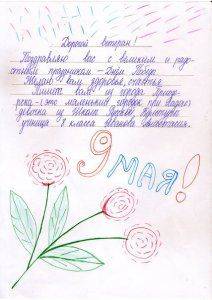 Дорогой ветеран!
Поздравляю вас с великим и радо-
стным праздником – Днём Победы.
Желаю вам здоровья, счастья.
Пишет вам из города
река – это маленький городок при
девочка из школы
ученица 8 класса Иванова Анастасия.
9 МАЯ!